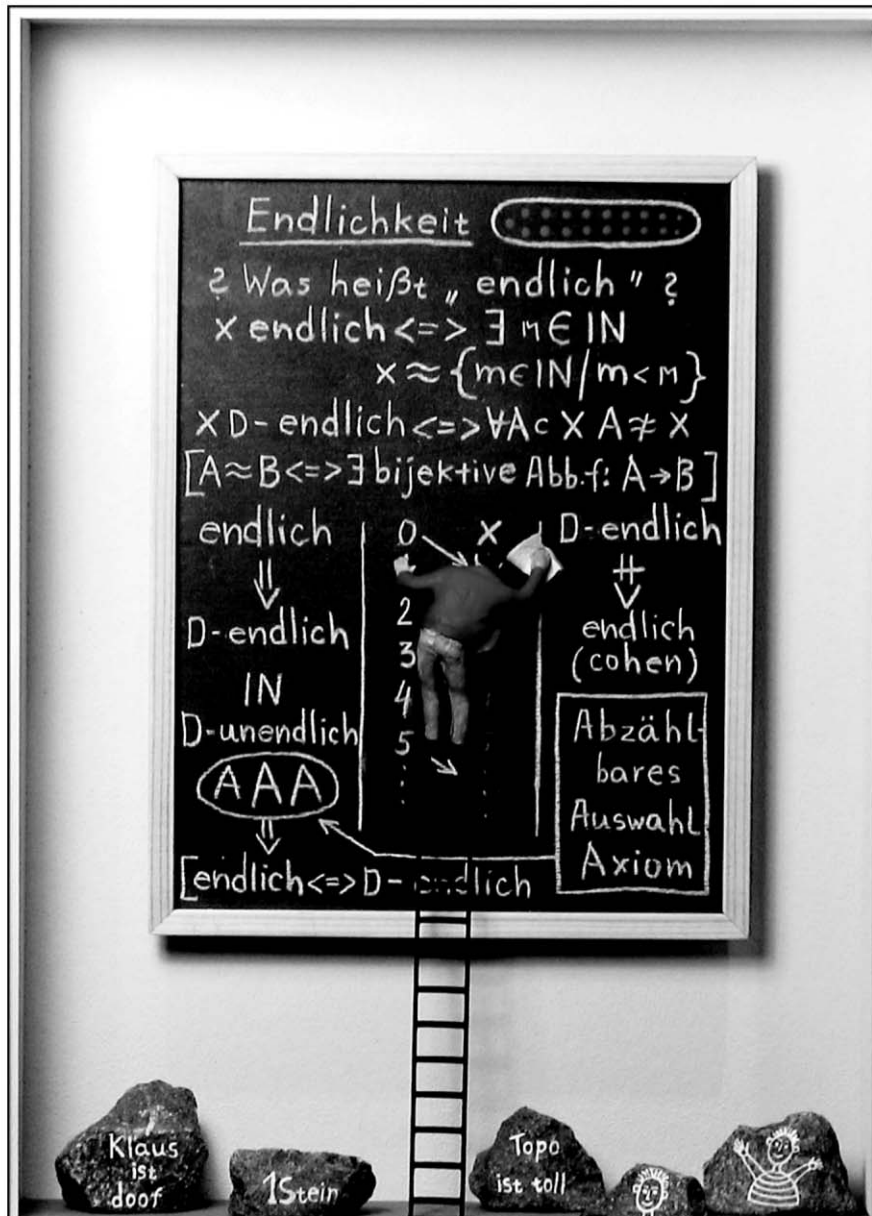 Endlichkeit
? Was heißt „endlich" ?
x endlich <=> ∃ n ∈ IN
x ≈ {m ∈ IN / m < n}
X D-endlich <=> ∀A ⊂ X A ≉ X
[A ≈ B <=> ∃ bijektive Abb. f: A → B]
endlich
⇓
D-endlich
IN
D-unendlich
AAA
⇓
[endlich <=> D-endlich
0 X
2
3
4
5
D-endlich
⇓
endlich
(cohen)
Abzähl-
bares
Auswahl
Axiom
Klaus
ist
doof
1Stein
Topo
ist toll